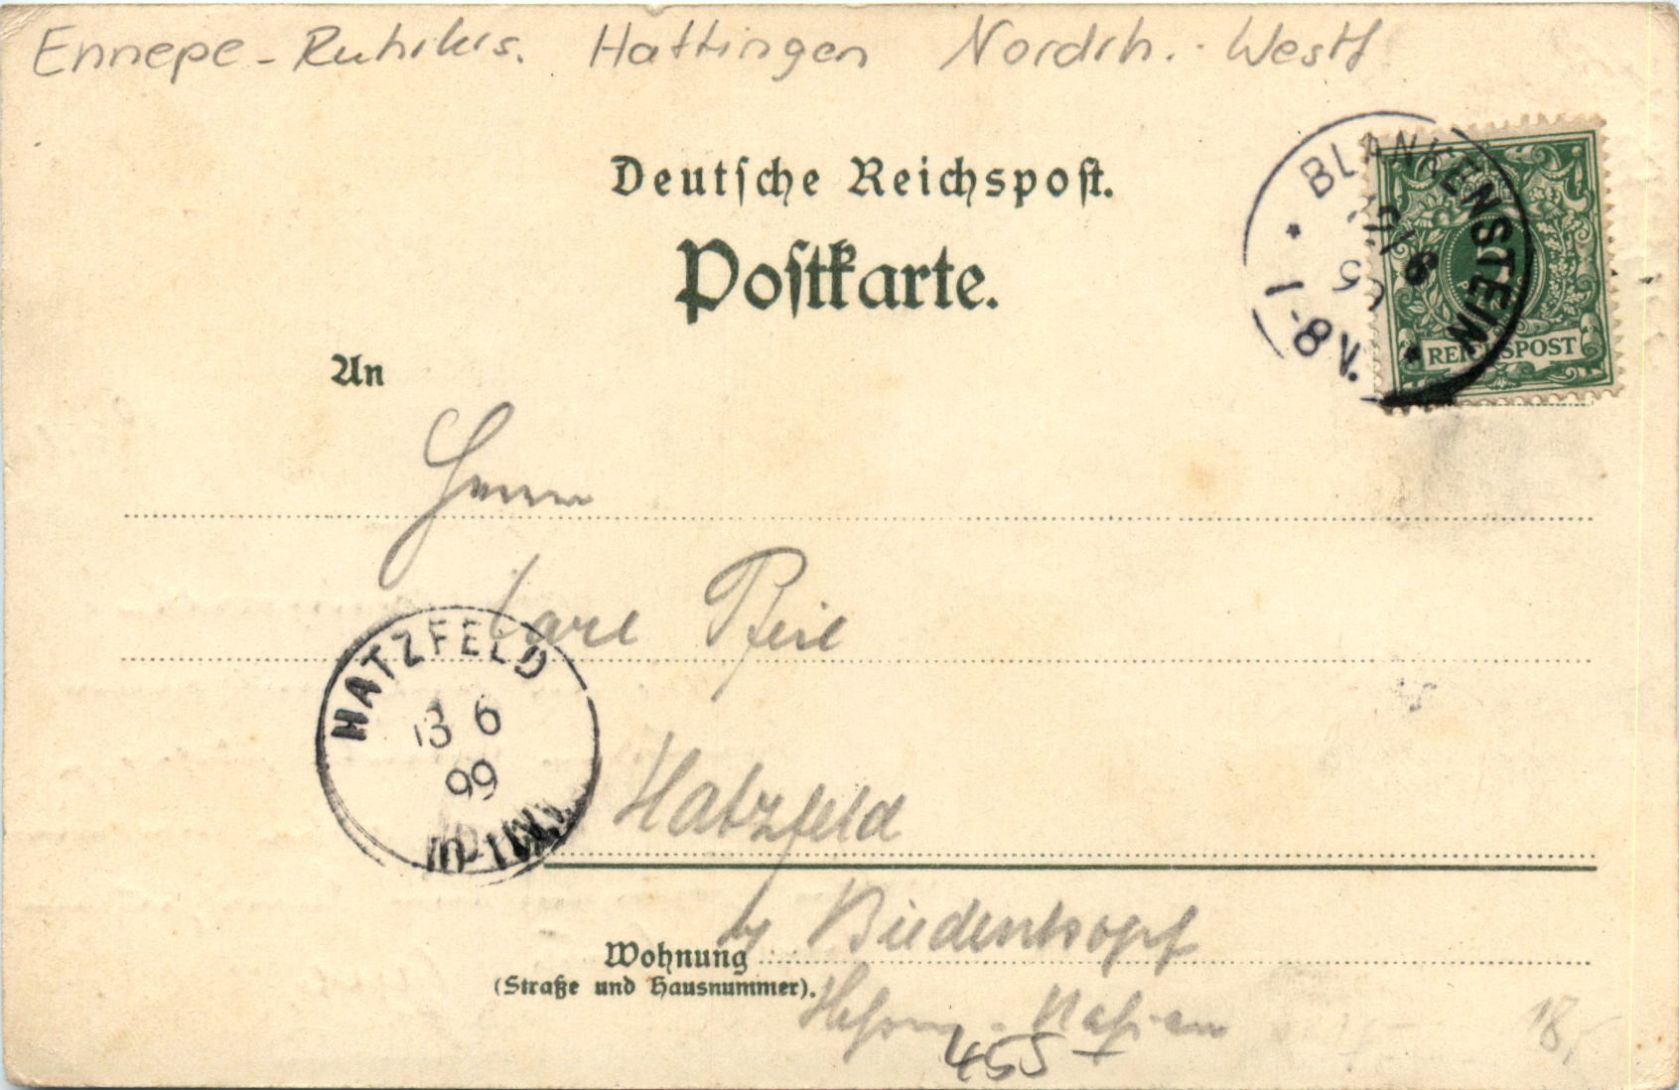 Ennepe-Ruhrkrs. Hattingen Nordrh.-Westf
Deutſche Reichspoſt.
Poſtkarte.
BLANKENSTEIN
6
1-8N.
REICHSPOST
An
Herrn
Carl Pfeil
HATZFELD
13 6
99
Hatzfeld
by Biedenkopf
Wohnung
(Straße und Hausnummer).
Hessen-Nassau
455
18,-